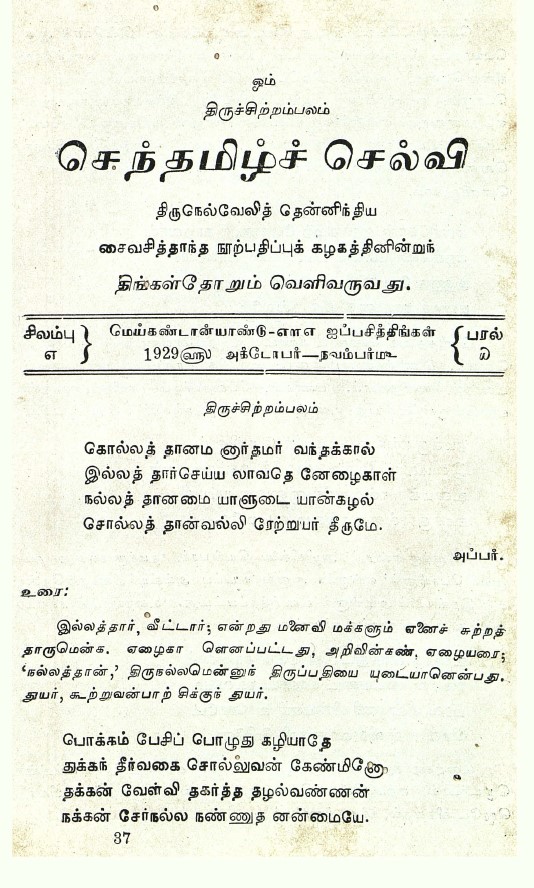 ஓம்
திருச்சிற்றம்பலம்
செந்தமிழ்ச் செல்வி
திருநெல்வேலித் தென்னிந்திய
சைவசித்தாந்த நூற்பதிப்புக் கழகத்தினின்றுந்
திங்கள்தோறும் வெளிவருவது.
சிலம்பு எ } மெய்கண்டான்யாண்டு-எ௱எ ஐப்பசித்திங்கள் { பரல் ௰
1929௵ அக்டோபர்—நவம்பர்௴
திருச்சிற்றம்பலம்
கொல்லத் தானம னார்தமர் வந்தக்கால்
இல்லத் தார்செய்ய லாவதெ னேழைகாள்
நல்லத் தானமை யாளுடை யான்கழல்
சொல்லத் தான்வல்லி ரேற்றுயர் தீருமே.
அப்பர்.
உரை:
இல்லத்தார், வீட்டார்; என்றது மனைவி மக்களும் ஏனைச் சுற்றத்
தாருமென்க. ஏழைகா ளெனப்பட்டது, அறிவின்கண், ஏழையரை;
‘நல்லத்தான்,’ திருநல்லமென்னுந் திருப்பதியை யுடையானென்பது.
துயர், கூற்றுவன்பாற் சிக்குந் துயர்.
பொக்கம் பேசிப் பொழுது கழியாதே
துக்கந் தீர்வகை சொல்லுவன் கேண்மினோ
தக்கன் வேள்வி தகர்த்த தழல்வண்ணன்
நக்கன் சேர்நல்ல நண்ணுத னன்மையே.
37